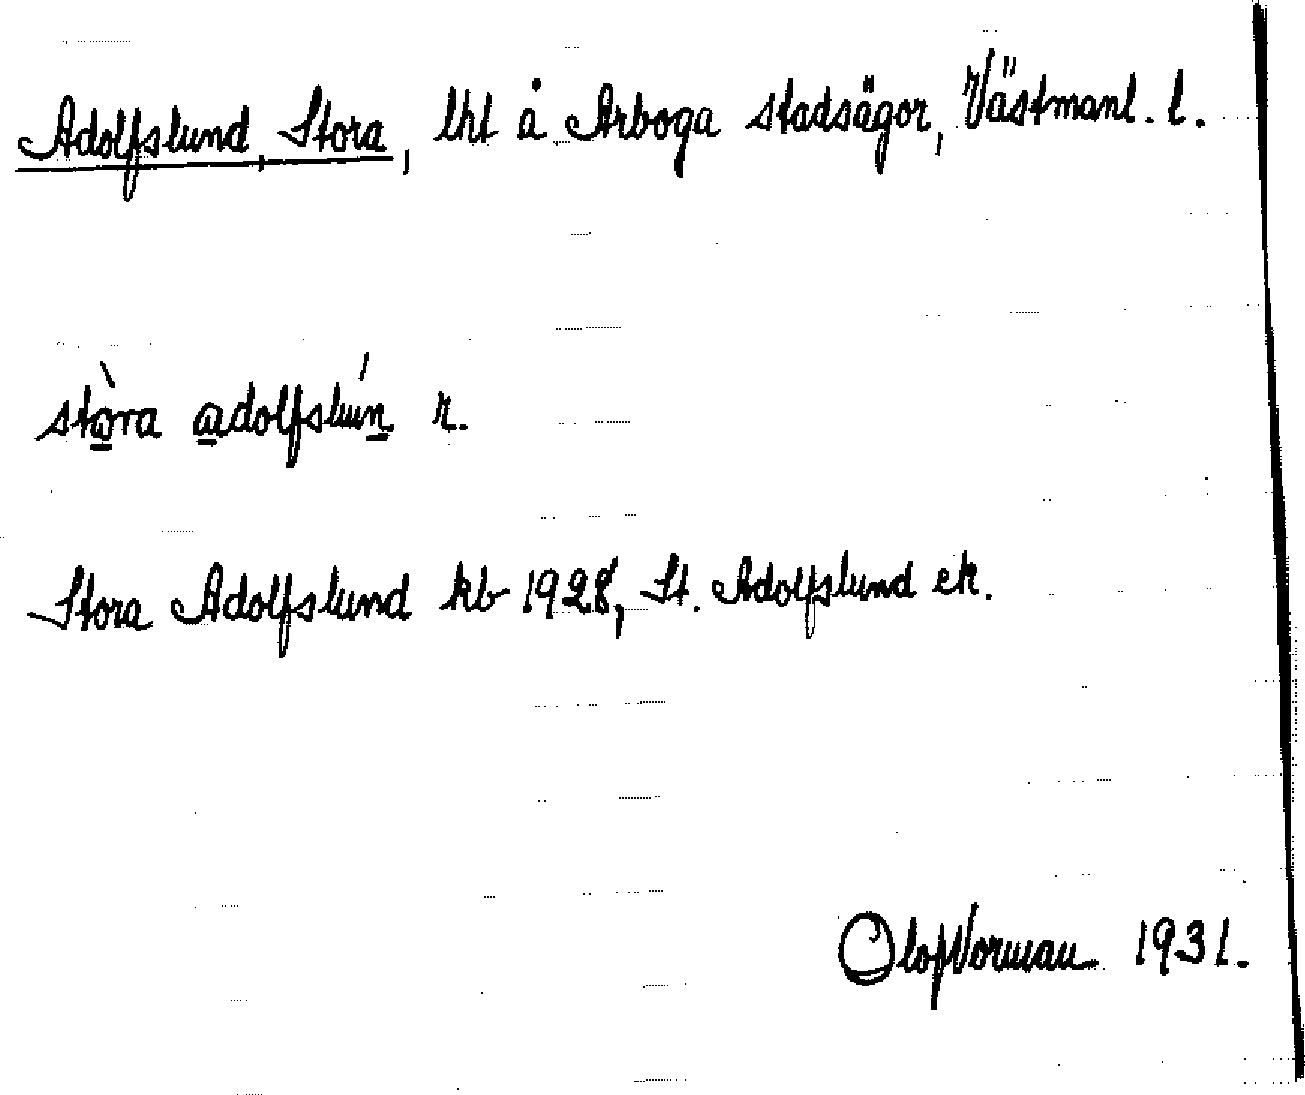 Adolfslund, Stora, lht å Arboga stadsägor, Västmanl. l.
stòra adolfslún r.
Stora Adolfslund kb 1928, St. Adolfslund ek.
Olof Norman 1931.